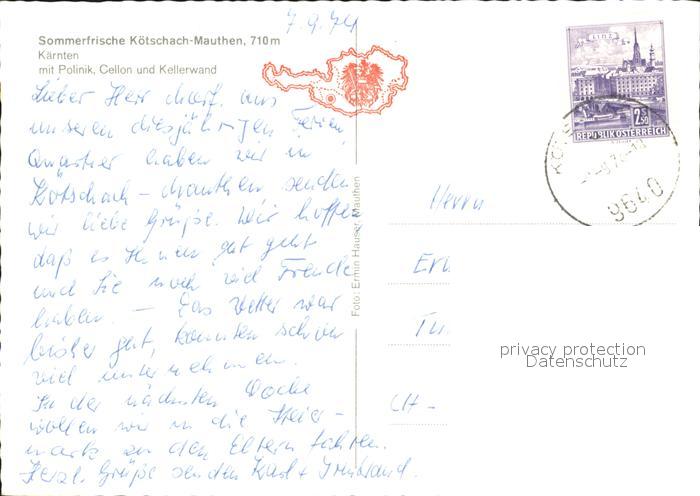 7.9.74
Sommerfrische Kötschach-Mauthen, 710 m
Kärnten
mit Polinik, Cellon und Kellerwand
Lieber Herr aus
unserem diesjährigen Ferien
Quartier haben wir in
Kötschach-Mauthen senden
wir liebe Grüße. Wir hoffen
daß es Ihnen gut geht
und Sie noch viel Freude
haben. — Das Wetter war
bisher gut, konnten schon
viel unternehmen.
In der nächsten Woche
wollen wir in die Steier-
mark zu den Eltern fahren.
Herzl. Grüße senden Karl +
Foto: Ermin Hauser, Mauthen
LINZ
2.50
REPUBLIK ÖSTERREICH
9640
Herrn
CH -
privacy protection
Datenschutz